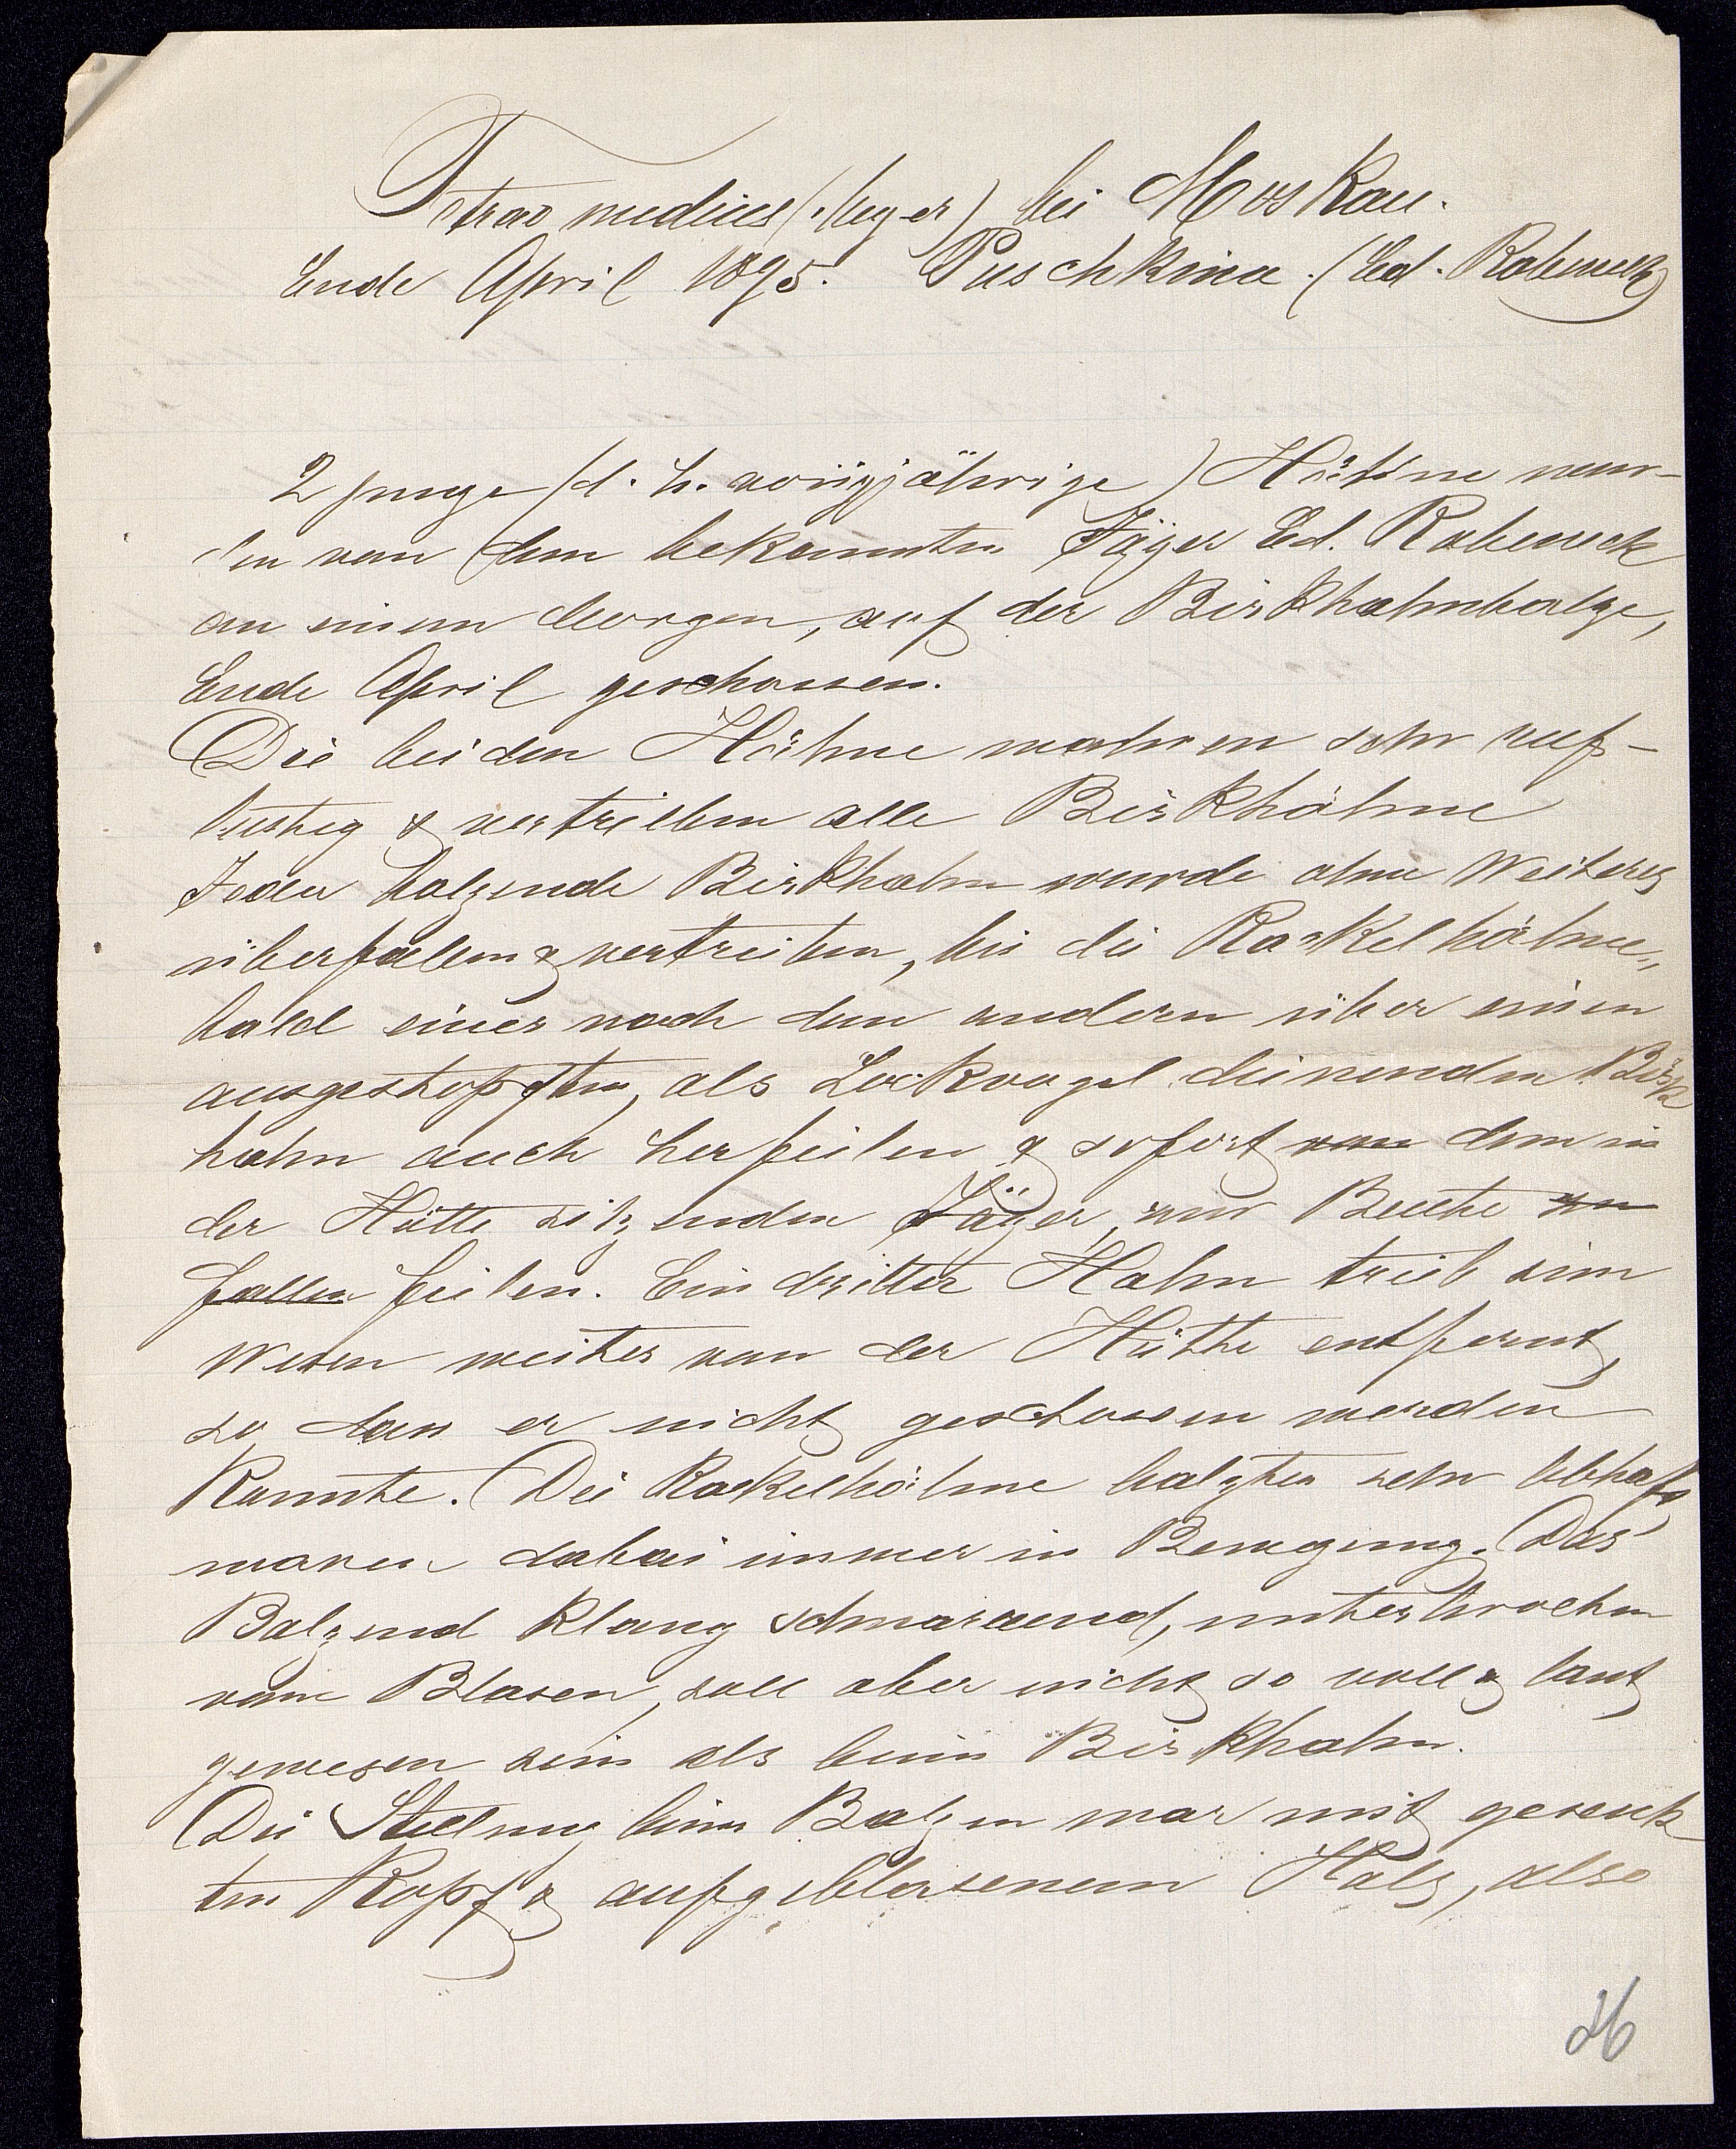 Tetrao medius (Meyer) bei Moskau.
Ende April 1895. Puschkino. (Ed. Rabeneck)
2 junge (d. h. vorigjährige) Hähne wur-
den von dem bekannten Jäger Ed. Rabeneck
an einem Morgen, auf der Birkhahnbalze,
Ende April geschossen.
Die beiden Hähne wahren sehr rauf-
lustig & vertrieben alle Birkhähne
Jeder balzende Birkhahn wurde ohne Weiteres
überfallen & vertrieben, bis die Rackelhähne,
bald einer nach dem andern über einen
ausgestopften, als Lockvogel dienenden Birk
hahn auch herfielen & sofort von dem in
der Hütte sitzenden Jäger, zur Beute zu
fallen fielen. Ein dritter Hahn trieb sein
Wesen weiter von der Hütte entfernt,
so dass er nicht geschossen werden
Konnte. Die Rackelhähne balzten sehr lebhaft,
waren dabei immer in Bewegung. Das
Balzend Klang schnarrend, unterbrochen
vom Blasen, soll aber nicht so voll & laut
gewesen sein als beim Birkhahn.
Die Stellung beim Balzen war mit gesenk
ten Kopf & aufgeblasenem Hals, also
26